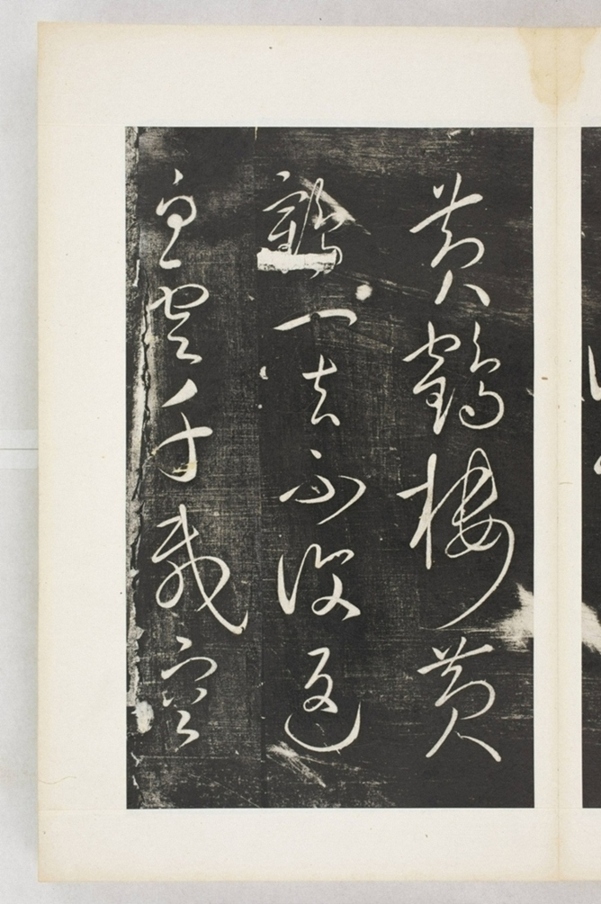 黃鶴樓黃
鶴一去不復返
白雲千載空